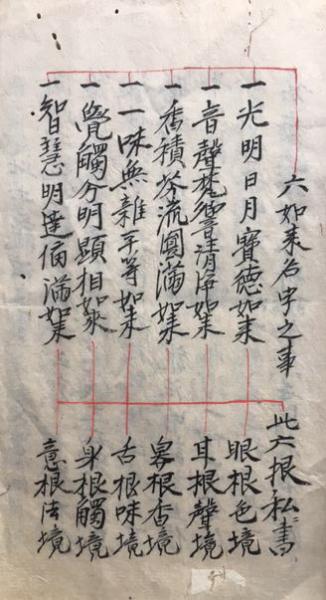 六如来名字之事 此六根私書
一光明日月寳德如来 眼根色境
一音聲苑響清净如来 耳根聲境
一香積芬流圓滿如来 鼻根香境
一一味無雜平等如来 舌根味境
一覺觸分明顕相如來 身根觸境
一智慧明達滿如来 意根法境